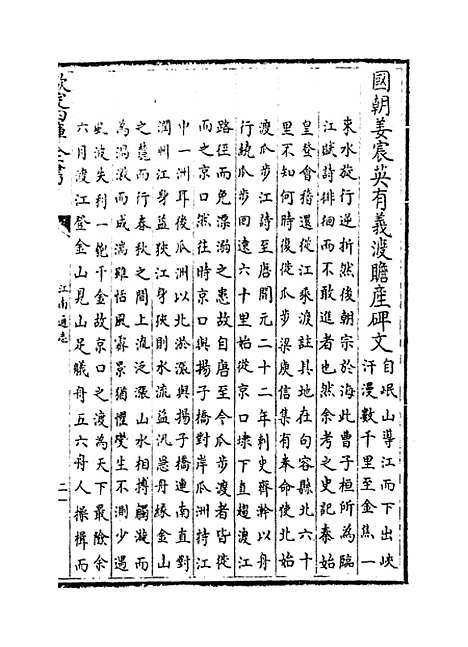 國朝姜宸英有義渡贍產碑文
自岷山導江而下出峽
汗漫數千里至金焦一
束水旋行逆折然後朝宗於海此曹子桓所為臨
江賦詩徘徊而不敢進者也然余考之史記秦始
皇登會稽還從江乘渡註其地在句容縣北六十
里不知何時復從瓜步梁庾信集有奉命使北始
渡瓜步江詩至唐開元二十二年刺史齊幹以舟
行繞瓜步回遠六十里始從京口埭下直趨渡江
路徑而免漂溺之患故自唐至今瓜步渡者皆從
而之京口然往時京口與揚子橋對岸瓜洲特江
中一洲耳後瓜洲以北淤漲與揚子橋連南直對
潤州江身益狹江身狹則水流益汛舟緣金山
之麓而行春秋之間上流泛漲山水相搏觸漩而
為渦激而成湍雖恬風霽景猶懼變生不測少遇
波失利一瓠千金故京口之渡為天下最險余
六月渡江登金山見山足艤舟五六舟人操楫而
欽定四庫全書
江南通志